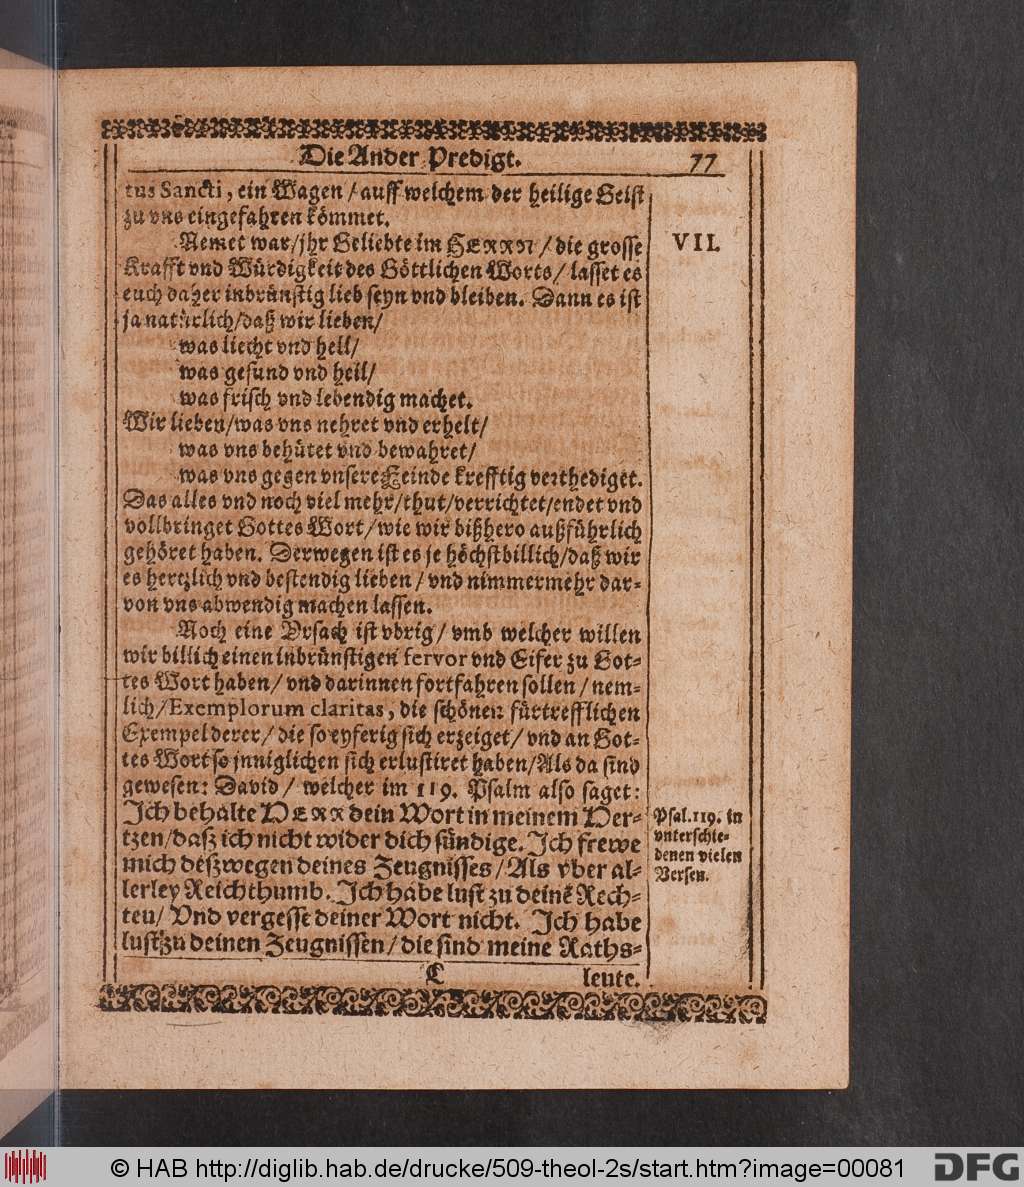 Die Ander Predigt.
77
tus Sancti, ein Wagen / auff welchem der heilige Geist
zu vns eingefahren kömmet.
Nemet war/ jhr Geliebte im HERRN / die grosse
VII.
Krafft vnd Würdigkeit des Göttlichen Worts/ lasset es
euch daher inbrünstig lieb seyn vnd bleiben. Dann es ist
ja natürlich/daß wir lieben/
was liecht vnd hell/
was gesund vnd heil/
was frisch vnd lebendig machet.
Wir lieben/was vns nehret vnd erhelt/
was vns behütet vnd bewahret/
was vns gegen vnsere Feinde krefftig verthediget.
Das alles vnd noch viel mehr/thut/verrichtet/endet vnd
vollbringet Gottes Wort/wie wir bißhero außführlich
gehöret haben. Derwegen ist es je höchstbillich/daß wir
es hertzlich vnd bestendig lieben / vnd nimmermehr dar-
von vns abwendig machen lassen.
Noch eine Vrsach ist vbrig/ vmb welcher willen
wir billich einen inbrünstigen fervor vnd Eifer zu Got-
tes Wort haben/ vnd darinnen fortfahren sollen / nem-
lich/Exemplorum claritas, die schönen fürtrefflichen
Exempel derer/ die so eyferig sich erzeiget/ vnd an Got-
tes Wort so jnniglichen sich erlustiret haben/Als da sind
gewesen: David/ welcher im 119. Psalm also saget:
Ich behalte HERR dein Wort in meinem Her-
Psal.119. in
tzen/daß ich nicht wider dich sündige. Ich frewe
vnterschie-
mich deßwegen deines Zeugnisses/ Als vber al-
denen vielen
lerley Reichthumb. Ich habe lust zu deinē Rech-
Versen.
ten/ Vnd vergesse deiner Wort nicht. Ich habe
lust zu deinen Zeugnissen/ die sind meine Raths-
C
leute.
© HAB http://diglib.hab.de/drucke/509-theol-2s/start.htm?image=00081
DFG